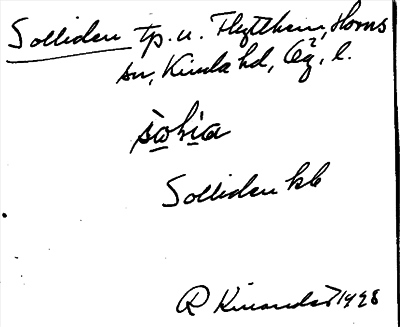 Solliden tp. u. Flytthem, Horns
sn, Kinda hd, Ög. l.
sol̀ia
Solliden kb
R Kinander 1928